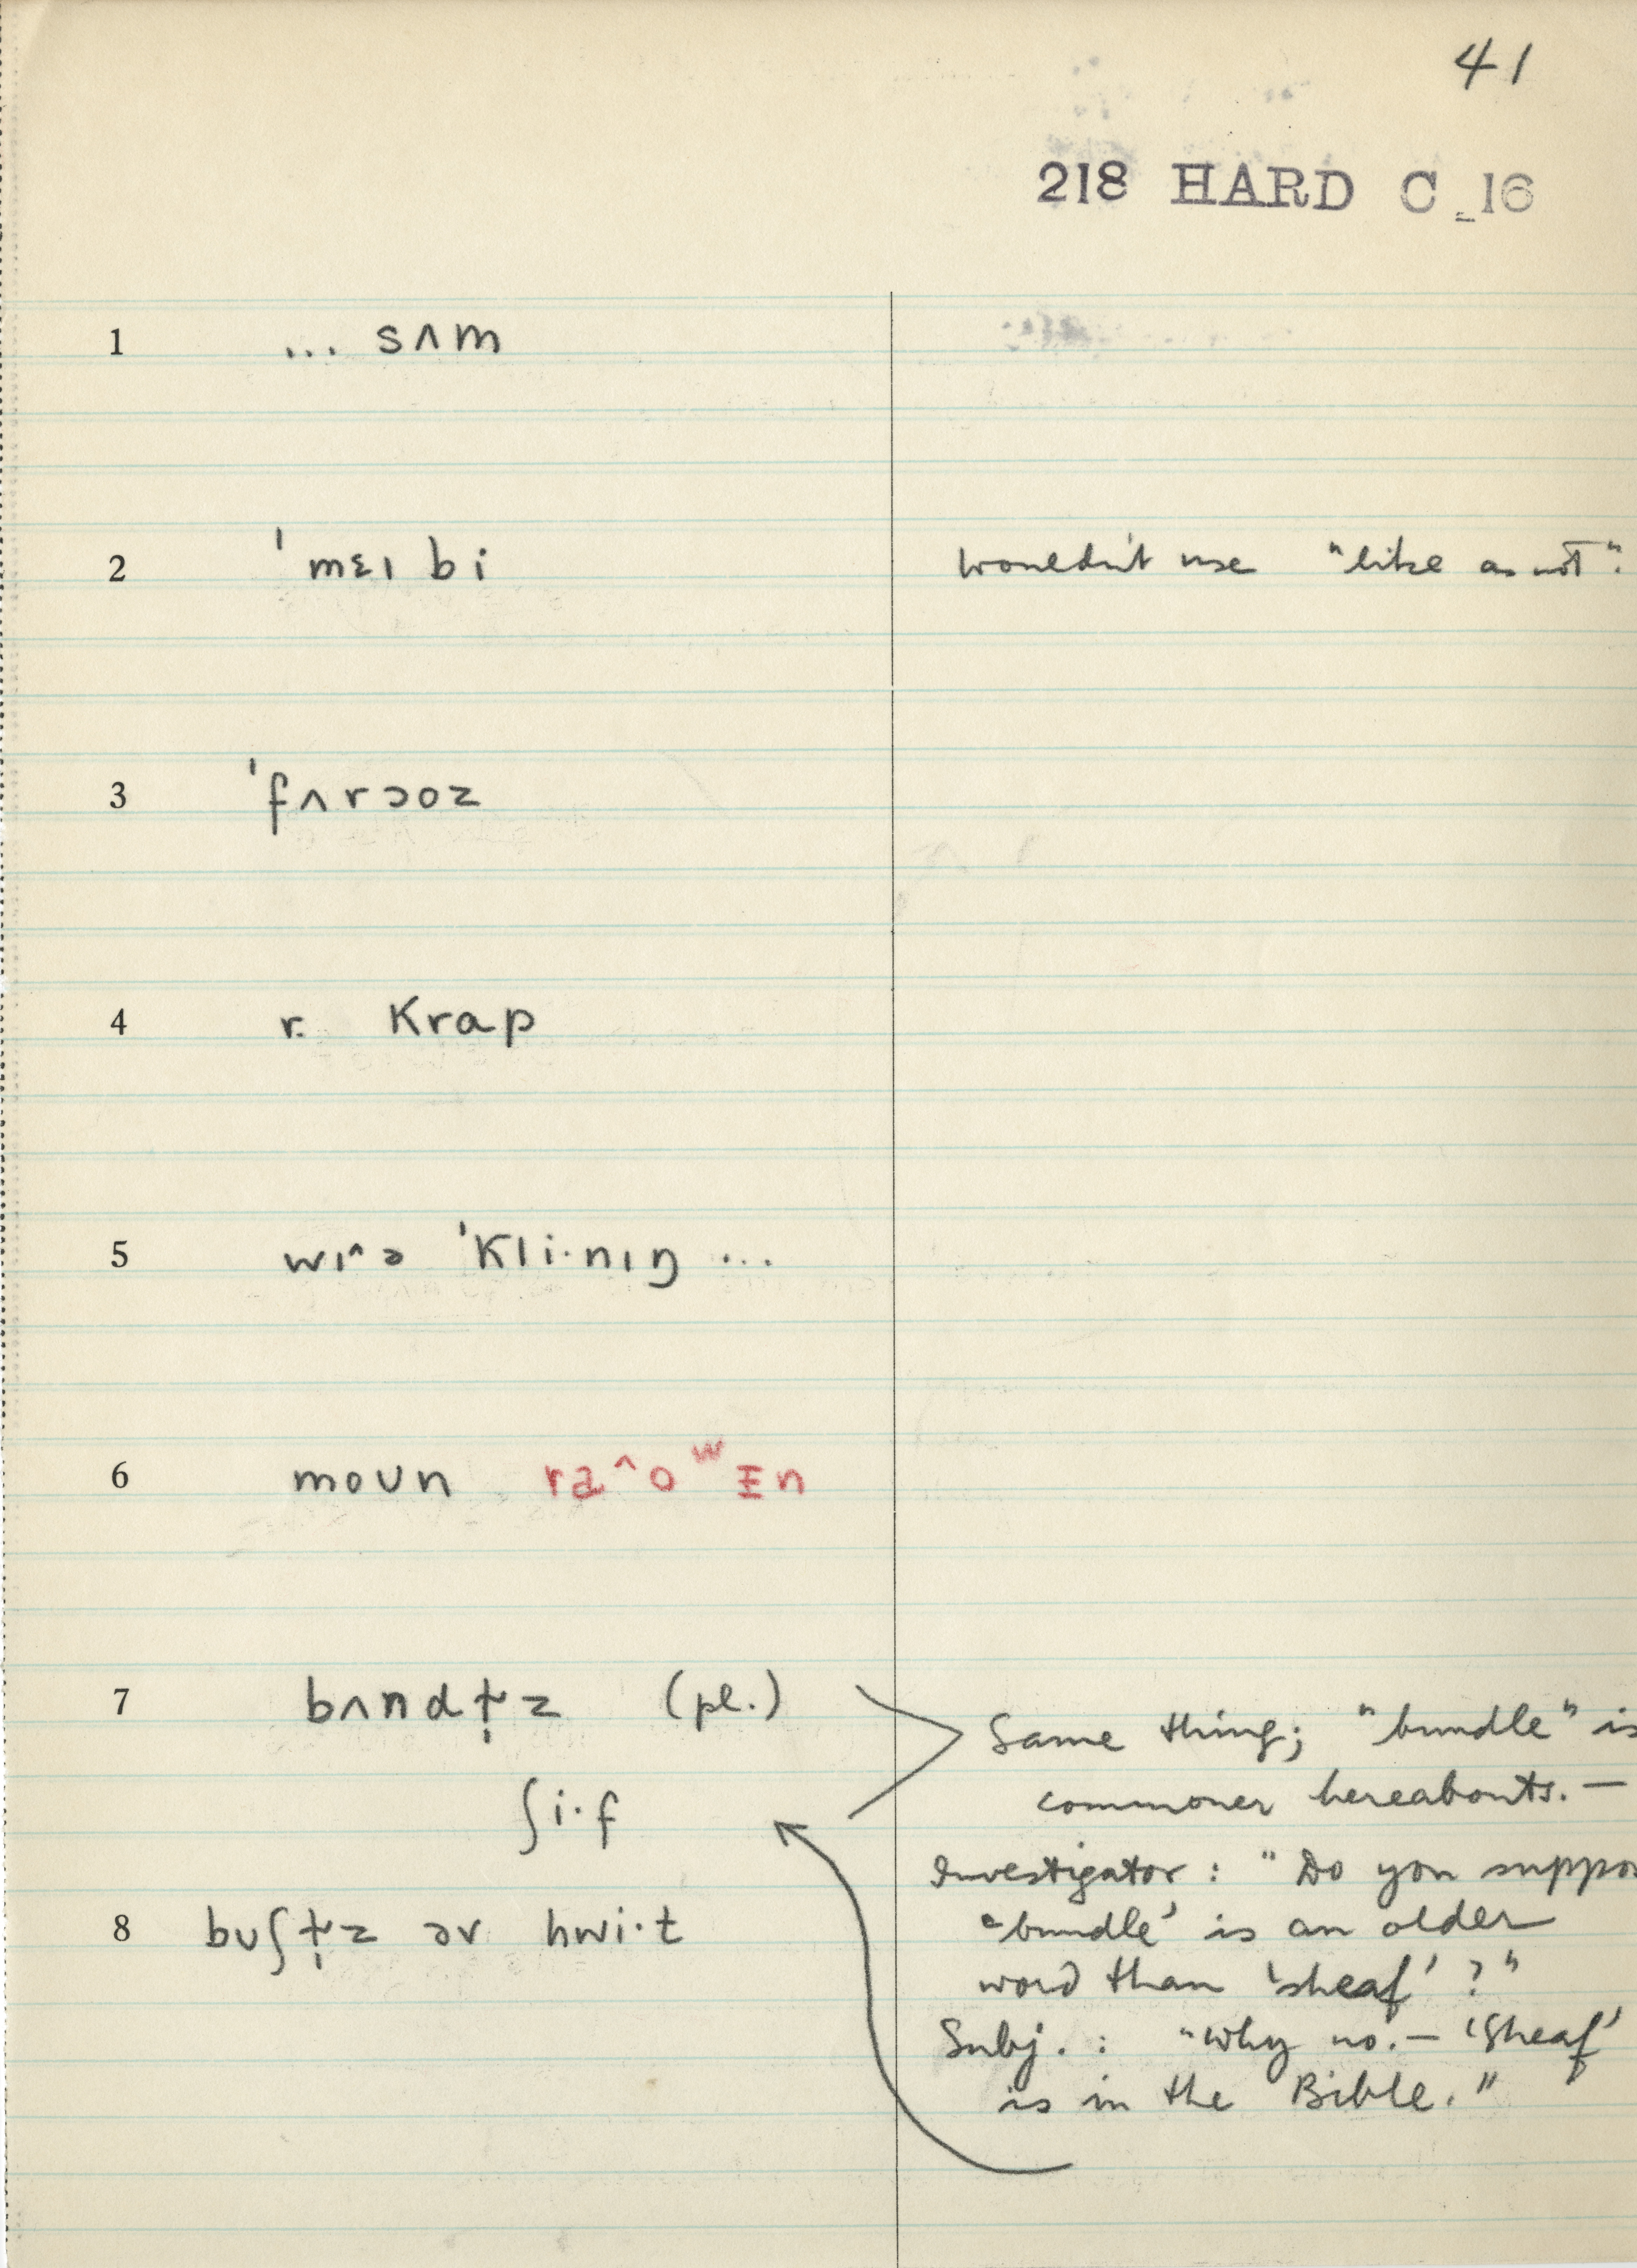 41
218 HARD C_16
1 ... sʌm
2 ˈmɛɪ bi wouldn't use "like as not".
3 ˈfʌrɔoz
4 r. krap
5 wɪ^ə ˈkli·nɪŋ ...
6 moʊn
7 bʌndɫ̩z (pl.)
Same thing; "bundle" is
ʃi·f
commoner hereabouts. —
Investigator: "Do you suppos
8 bʊʃɫ̩z əv hwi·t
'bundle' is an older
word than 'sheaf'?"
Subj.: "Why no. — 'Sheaf'
is in the Bible."